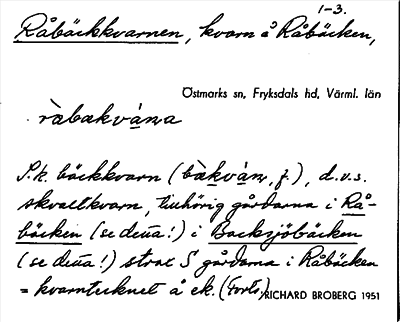 1-3.
Råbäckkvarnen, kvarn å Råbäcken,
Östmarks sn, Fryksdals hd, Värml. län
ràbakvánna
S.k. bäckkvarn (bàkván, f.), d.v.s.
skvaltkvarn, tillhörig gårdarna i Rå-
bäcken (se detta!) i Backsjöbäcken
(se detta!) strax S gårdarna i Råbäcken
= kvarntecknet å ek. (Forts.)
RICHARD BROBERG 1951